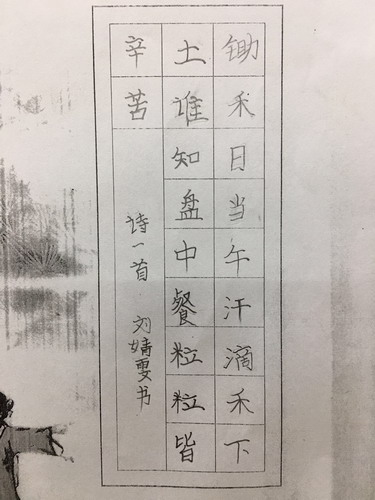 锄禾日当午汗滴禾下
土谁知盘中餐粒粒皆
辛苦
诗一首 刘婧雯书